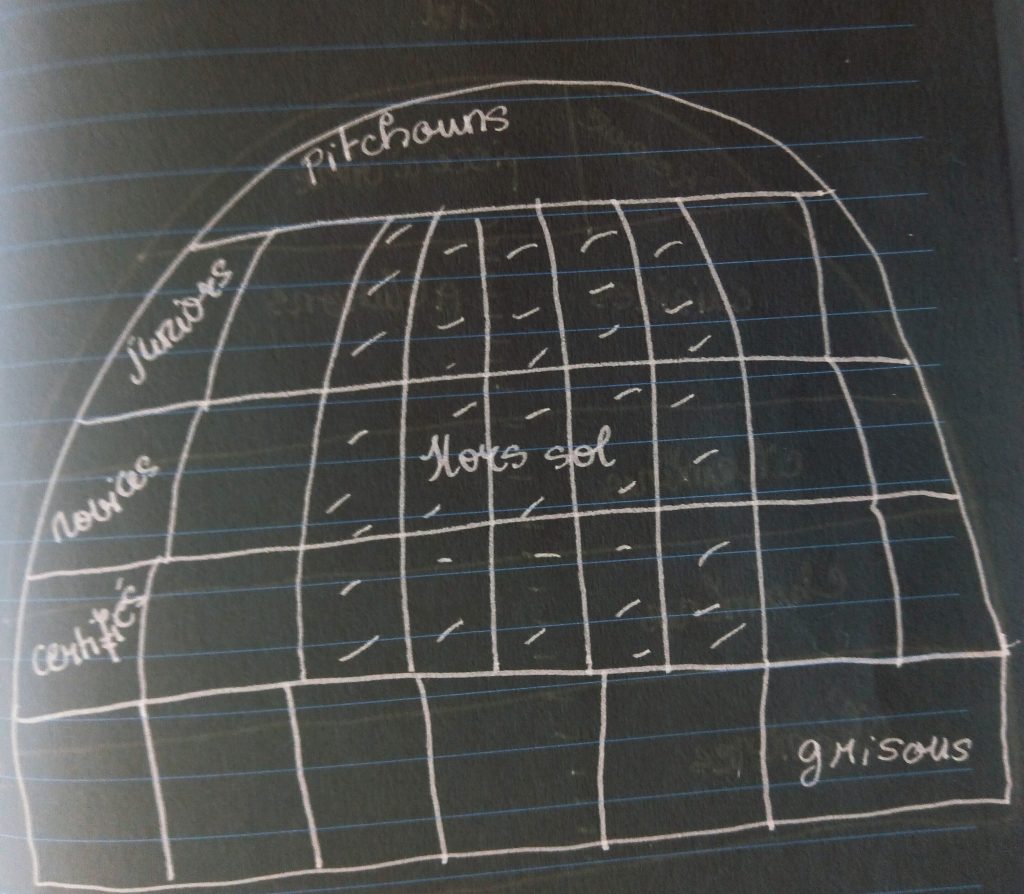 pitchouns
juniors
novices
Hors sol
certifiés
grisous